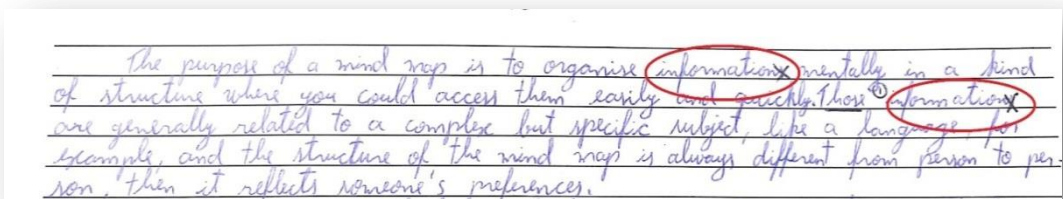 The purpose of a mind map is to organise informations mentally in a kind
of structure where you could access them easily and quickly. Those informations
are generally related to a complex but specific subject, like a language for
example, and the structure of the mind map is always different from person to per-
son, then it reflects someone's preferences.